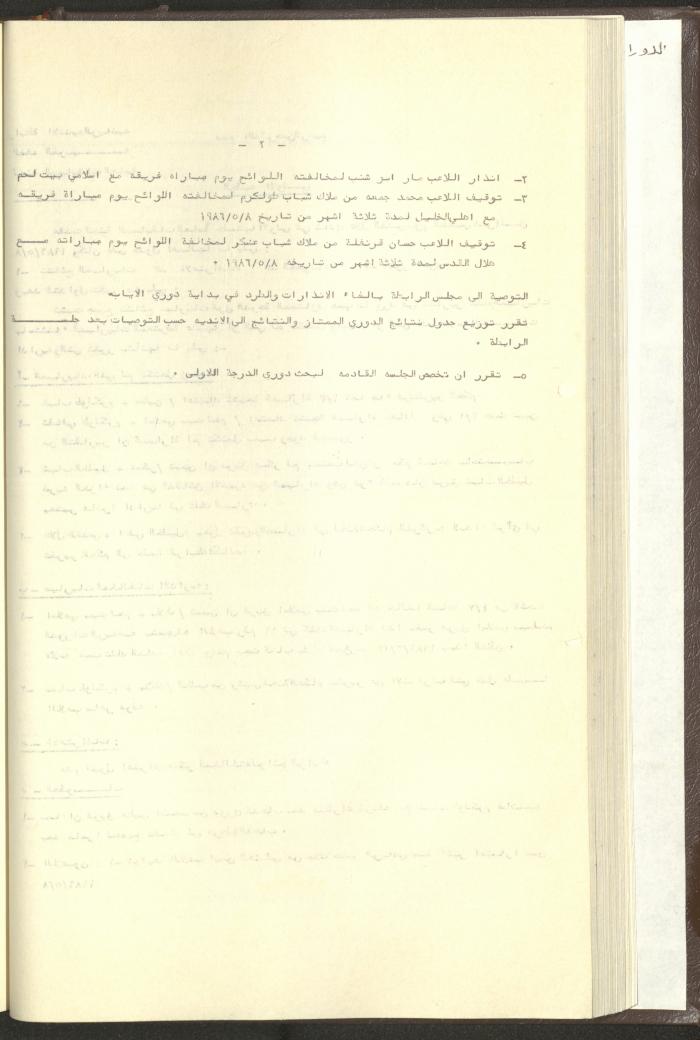 الدورا
- ٢ -
٢- انذار اللاعب مار ابو شنب لمخالفته اللوائح يوم مباراه فريقه مع اسلامي بيت لحم
٣- توقيف اللاعب محمد جمعه من ملاك شباب طولكرم لمخالفته اللوائح يوم مباراة فريقه
مع اهلي الخليل لمدة ثلاثة اشهر من تاريخ ١٩٨٦/٥/٨
٤- توقيف اللاعب حسان قرنفلة من ملاك شباب عسكر لمخالفة اللوائح يوم مباراته مع
هلال القدس لمدة ثلاثة اشهر من تاريخه ١٩٨٦/٥/٨ ٠
التوصية الى مجلس الرابطة بالغاء الانذارات والطرد في بداية دوري الاياب٠
تقرر توزيع جدول نتائج الدوري الممتاز والنتائج الى الانديه حسب التوصيات بعد جلسة
الرابطة ٠
٥- تقرر ان تخصص الجلسه القادمه لبحث دورى الدرجة الاولى ٠